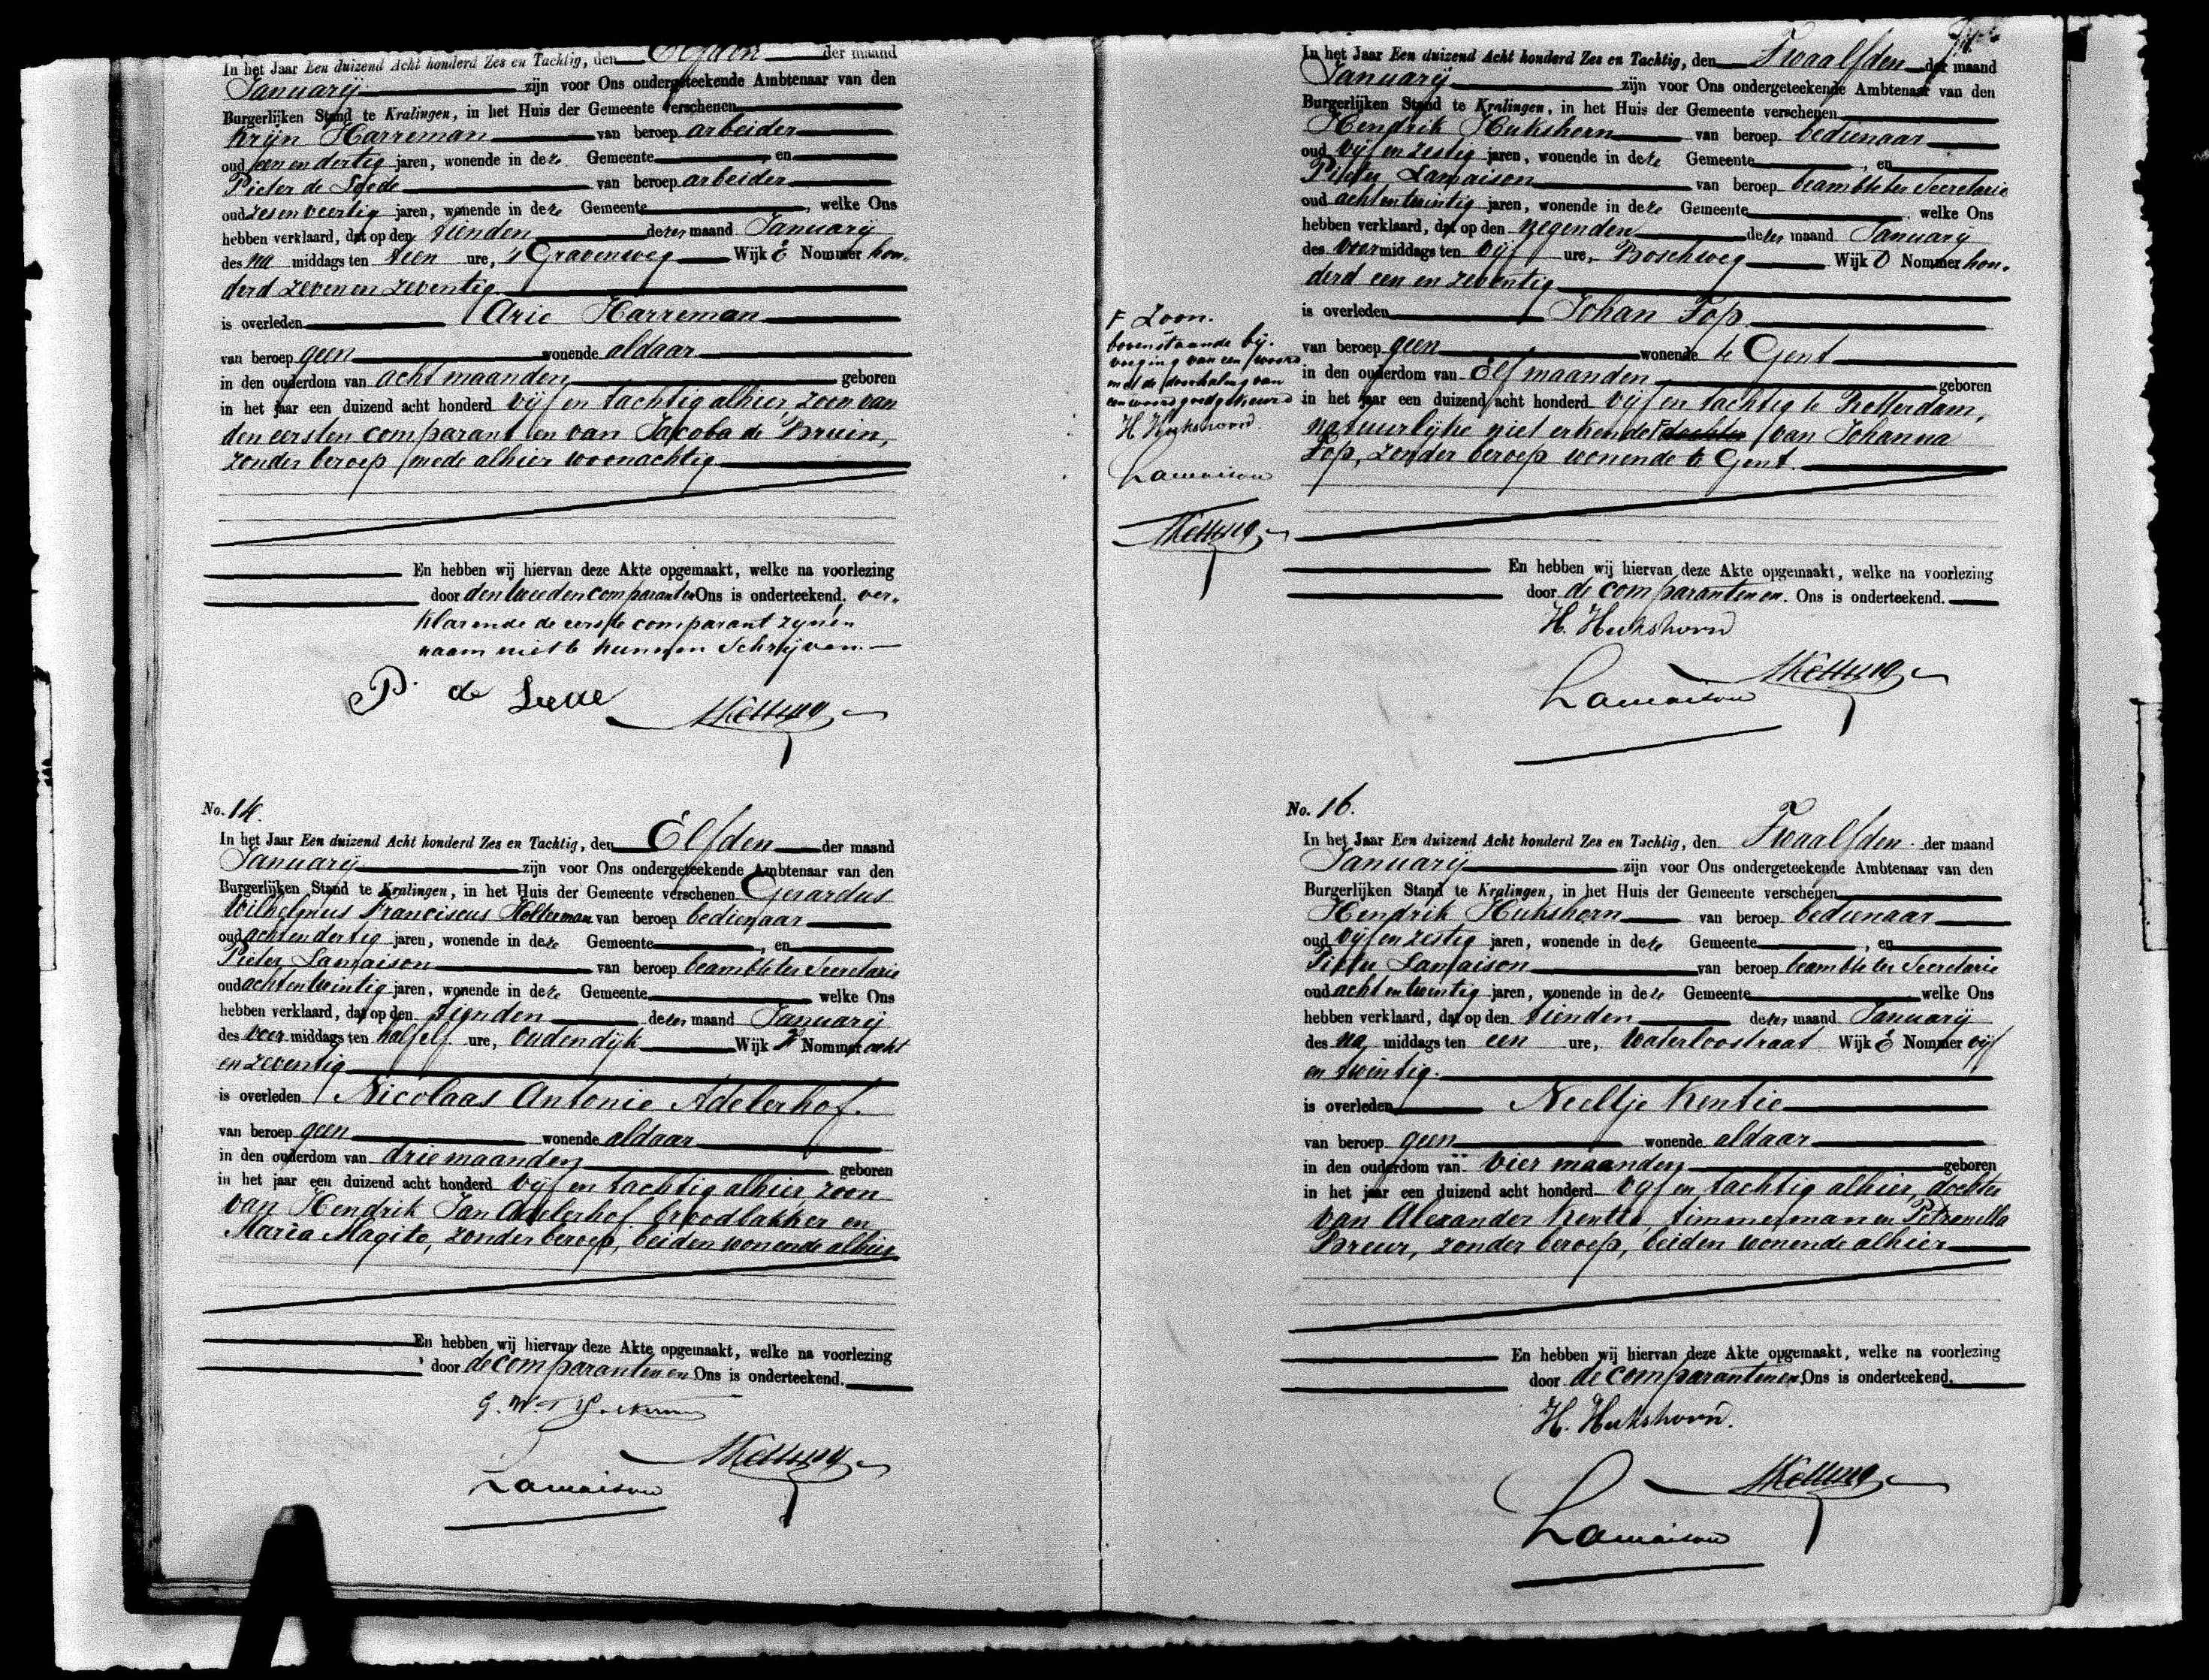 In het Jaar Een duizend Acht honderd Zes en Tachtig, den Elfden der maand
Januarij zijn voor Ons ondergeteekende Ambtenaar van den
Burgerlijken Stand te Kralingen, in het Huis der Gemeente verschenen
Krijn Harreman van beroep arbeider
oud een en dertig jaren, wonende in deze Gemeente, en
Pieter de Leede van beroep arbeider
oud zes en veertig jaren, wonende in deze Gemeente, welke Ons
hebben verklaard, dat op den tienden dezer maand Januarij
des na middags ten tien ure, 's Gravenweg Wijk E Nommer hon-
derd zeven en zeventig
is overleden Arie Harreman
van beroep geen wonende aldaar
in den ouderdom van acht maanden geboren
in het jaar een duizend acht honderd vijf en tachtig alhier, zoon van
den eersten comparant en van Jacoba de Bruin,
zonder beroep mede alhier woonachtig
En hebben wij hiervan deze Akte opgemaakt, welke na voorlezing
door den tweeden comparant en Ons is onderteekend, ver-
klarende de eerste comparant zijnen
naam niet te kunnen schrijven.
P. de Leede
No. 14.
In het Jaar Een duizend Acht honderd Zes en Tachtig, den Elfden der maand
Januarij zijn voor Ons ondergeteekende Ambtenaar van den
Burgerlijken Stand te Kralingen, in het Huis der Gemeente verschenen Gerardus
Wilhelmus Franciscus Holterman van beroep bedienaar
oud acht en dertig jaren, wonende in deze Gemeente, en
Pieter Lamaison van beroep beambte ter Secretarie
oud acht en twintig jaren, wonende in deze Gemeente welke Ons
hebben verklaard, dat op den tienden dezer maand Januarij
des voor middags ten half elf ure, Oudendijk Wijk Nommer acht
en zeventig
is overleden Nicolaas Antonie Adelerhof.
van beroep geen wonende aldaar
in den ouderdom van drie maanden geboren
in het jaar een duizend acht honderd vijf en tachtig alhier, zoon
van Hendrik Jan Adelerhof broodbakker en
Maria Magito, zonder beroep, beiden wonende alhier
En hebben wij hiervan deze Akte opgemaakt, welke na voorlezing
door de comparanten en Ons is onderteekend.
Lamaison
In het Jaar Een duizend Acht honderd Zes en Tachtig, den Twaalfden der maand
Januarij zijn voor Ons ondergeteekende Ambtenaar van den
Burgerlijken Stand te Kralingen, in het Huis der Gemeente verschenen
Hendrik Hukshorn van beroep bedienaar
oud vijf en zestig jaren, wonende in deze Gemeente, en
Pieter Lamaison van beroep beambte ter Secretarie
oud acht en twintig jaren, wonende in deze Gemeente, welke Ons
hebben verklaard, dat op den negenden dezer maand Januarij
des voor middags ten vijf ure, Boschweg Wijk D Nommer hon-
derd een en zeventig
is overleden Johan Fop
van beroep geen wonende te Gent
in den ouderdom van Elf maanden geboren
in het jaar een duizend acht honderd vijf en tachtig te Rotterdam,
natuurlijke niet erkende F dochter van Johanna
Fop, zonder beroep wonende te Gent.
F Zoon.
bovenstaande bij-
voeging van een woord
met de doorhaling van
een woord goedgekeurd
H. Hukshorn
Lamaison
En hebben wij hiervan deze Akte opgemaakt, welke na voorlezing
door de comparanten en Ons is onderteekend.
H. Hukshorn
Lamaison
No. 16.
In het Jaar Een duizend Acht honderd Zes en Tachtig, den Twaalfden der maand
Januarij zijn voor Ons ondergeteekende Ambtenaar van den
Burgerlijken Stand te Kralingen, in het Huis der Gemeente verschenen
Hendrik Hukshorn van beroep bedienaar
oud vijf en zestig jaren, wonende in deze Gemeente, en
Pieter Lamaison van beroep beambte ter Secretarie
oud acht en twintig jaren, wonende in deze Gemeente welke Ons
hebben verklaard, dat op den tienden dezer maand Januarij
des na middags ten een ure, Waterloostraat Wijk E Nommer vijf
en twintig.
is overleden Neeltje Kentie
van beroep geen wonende aldaar
in den ouderdom van vier maanden geboren
in het jaar een duizend acht honderd vijf en tachtig alhier, dochter
van Alexander Kentie, timmerman en Petronella
Breur, zonder beroep, beiden wonende alhier
En hebben wij hiervan deze Akte opgemaakt, welke na voorlezing
door de comparanten en Ons is onderteekend.
H. Hukshorn.
Lamaison